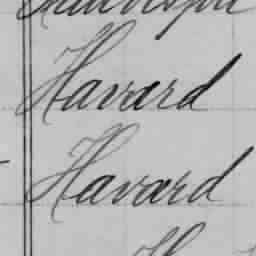 Havard
Havard